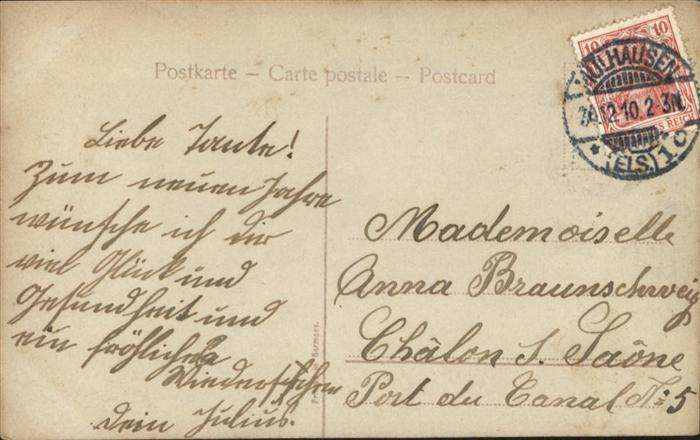 Postkarte – Carte postale – Postcard
10 10
MÜLHAUSEN
12.10.2-3N.
(ELS.) 1 c
REICH
Liebe Tante!
Zum neuen Jahre
wünsche ich dir
viel Glück und
Gesundheit und
ein fröhliches
Wiedersehen
dein Julius.
Mademoiselle
Anna Braunschweig
Châlon s. Saône
Port du Canal No: 5